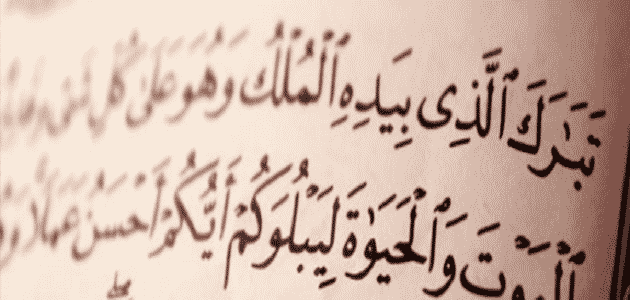 تَبَٰرَكَ ٱلَّذِى بِيَدِهِ ٱلْمُلْكُ وَهُوَ عَلَىٰ كُلِّ شَىْءٍ
ٱلْمَوْتَ وَٱلْحَيَوٰةَ لِيَبْلُوَكُمْ أَيُّكُمْ أَحْسَنُ عَمَلًا